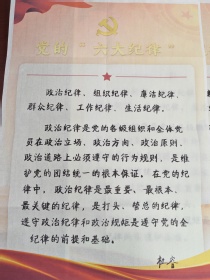 党的“六大纪律”
政治纪律、组织纪律、廉洁纪律、
群众纪律、工作纪律、生活纪律。
政治纪律是党的各级组织和全体党
员在政治立场、政治方向、政治原则、
政治道路上必须遵守的行为规则，是维
护党的团结统一的根本保证。在党的纪
律中，政治纪律是最重要、最根本、
最关键的纪律，是打头、管总的纪律，
遵守政治纪律和政治规矩是遵守党的全
纪律的前提和基础。